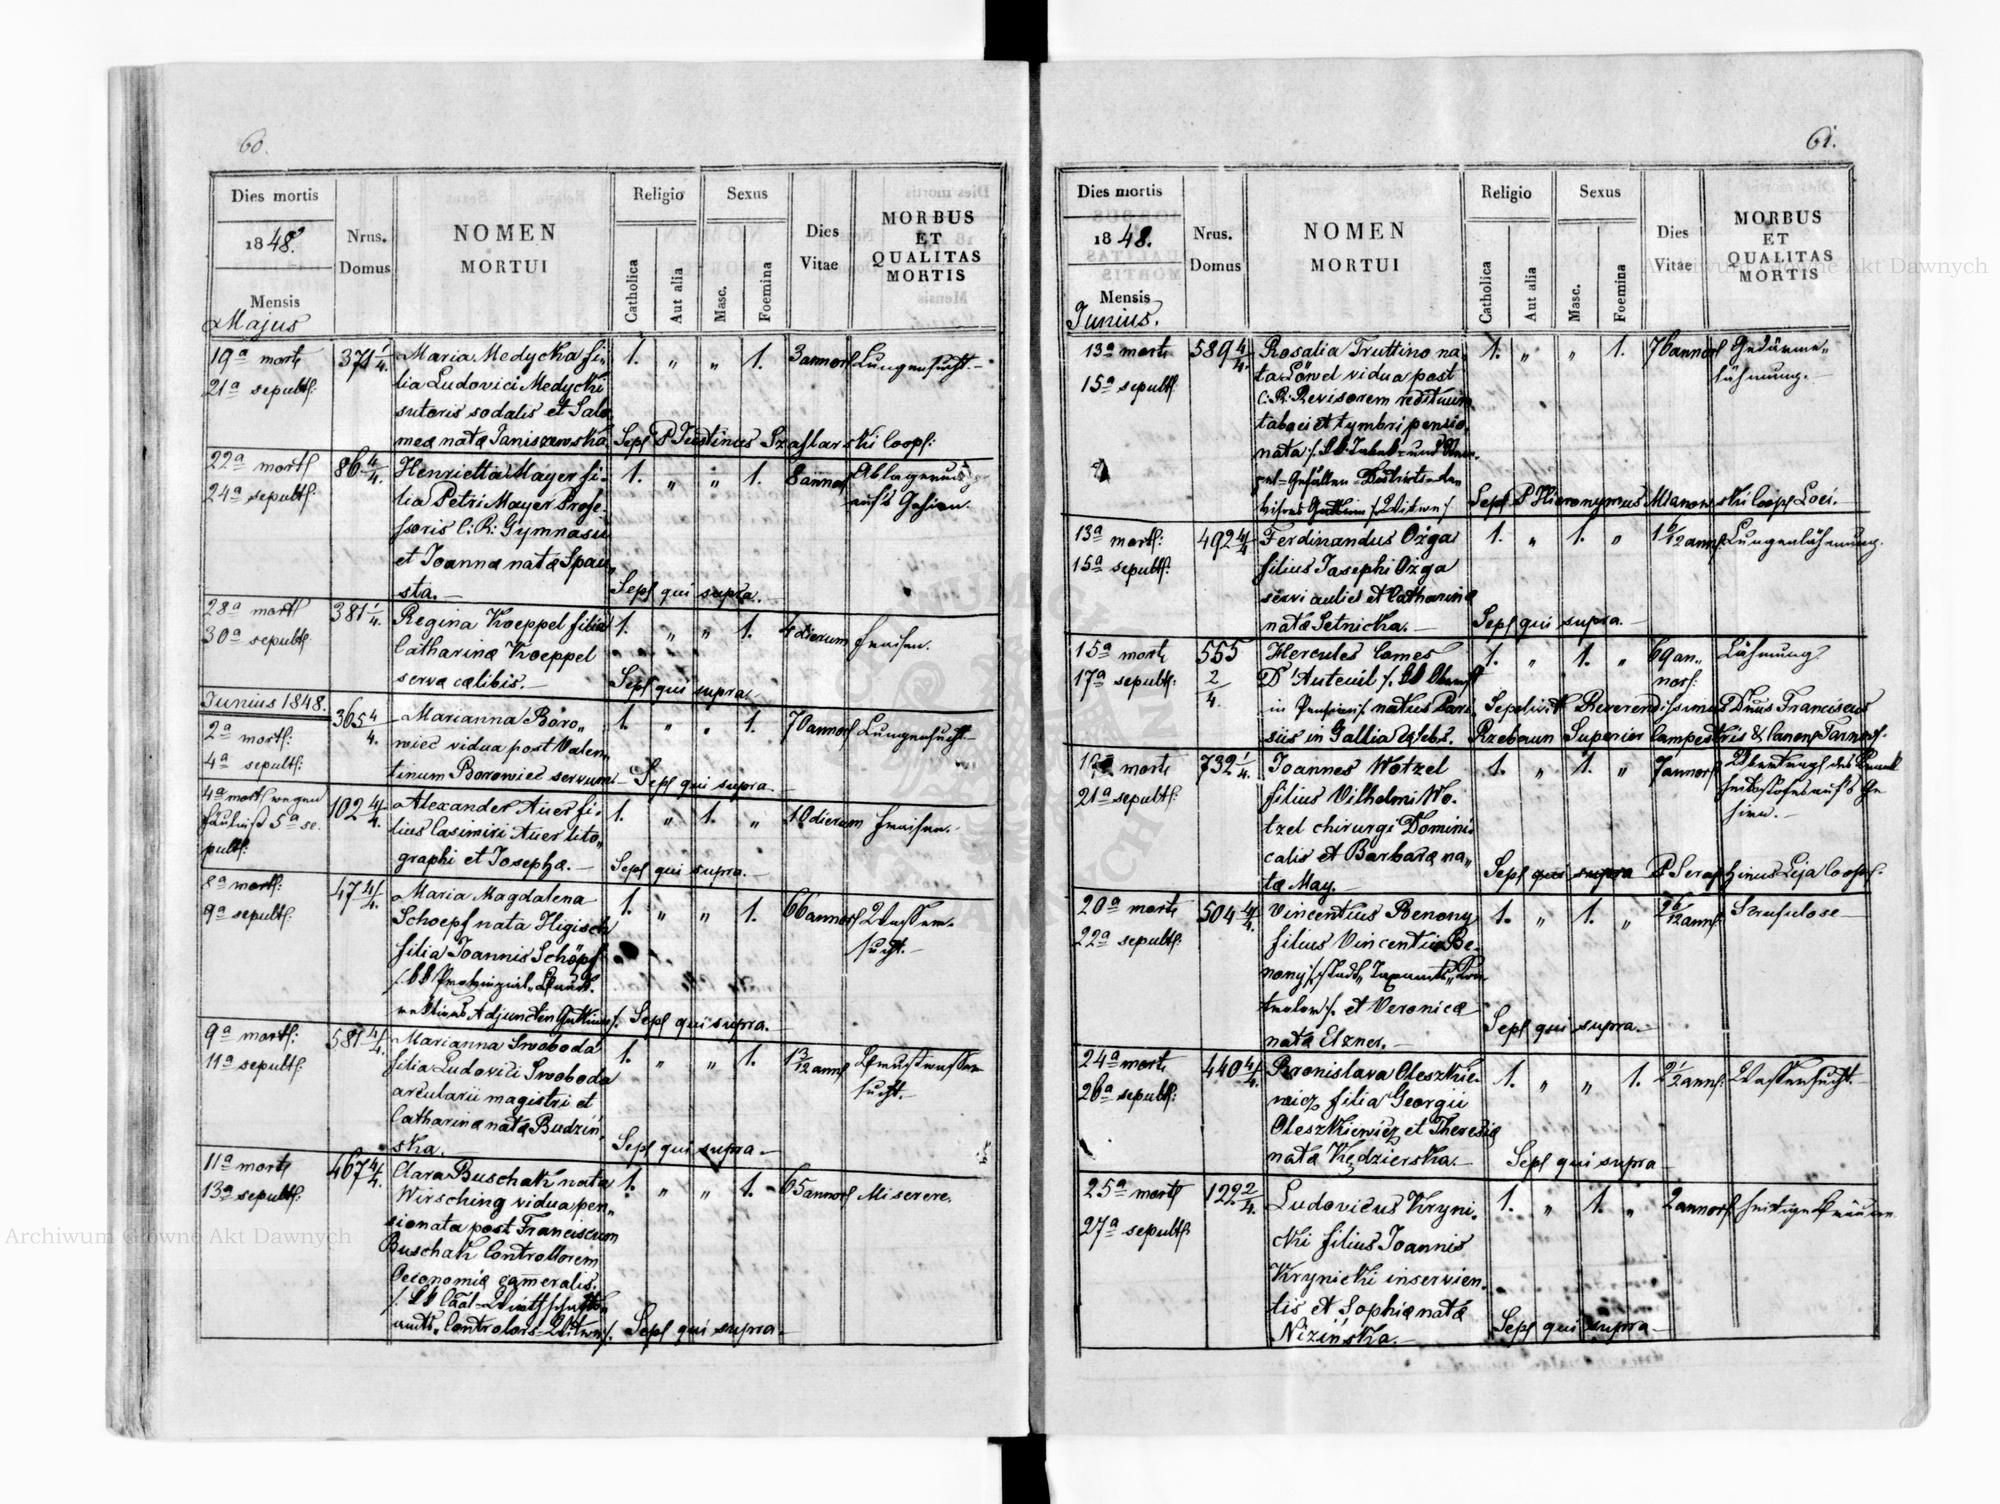 60.
Dies mortis
1848.
Mensis
Majus
Nrus.
Domus
NOMEN
MORTUI
Religio
Catholica
Aut alia
Sexus
Masc.
Foemina
Dies
Vitae
MORBUS
ET
QUALITAS
MORTIS
19a mort: 371 1/4. Maria Medycka fi- 1. „ „ 1. 3 annor: Lungensucht.
21a sepult: lia Ludovici Medycki
sutoris sodalis et Salo
mea nata Janiszewska. Sep: P Justinus Szaflarski coop:
22a mort: 86 4/4. Henrietta Mayer fi- 1. „ „ 1. 8 annor: Ablagerung
24a sepult: lia Petri Mayer Profe- auf's Gehirn.
ssoris C: R: Gymnasii
et Joanna nata Spau
sta. Sep: qui supra.
28a mort: 381 1/4. Regina Koeppel filia 1. „ „ 1. 4 dierum Fraisen.
30a sepult: Catharinæ Koeppel
serva cœlibis. Sep: qui supra.
Junius 1848.
2a mort: 365 4/4. Marianna Boro„ 1. „ „ 1. 70 annor: Lungensucht.
4a sepult: wiec vidua post Valen
tinum Borowiec servum. Sep: qui supra
4a mort: wegen 102 4/4. Alexander Auer fi- 1. „ 1. „ 10 dierum Fraisen.
Fäulniß 5a se- lius Casimiri Auer lito„
pult: graphi et Josepha. Sep: qui supra.
8a mort: 47 4/4. Maria Magdalena 1. „ „ 1. 66 annor: Wasser-
9a sepult: Schoepf nata Higisch sucht.
filia Joannis Schöpf
Adjuncten Gattin Sep: qui supra.
9a mort: 581 4/4. Marianna Swoboda 1. „ „ 1. 1 3/12 ann: Brustwasser
11a sepult: filia Ludovici Swoboda sucht.
arcularii magistri et
Catharina nata Budzin„
ska. Sep: qui supra
11a mort: 467 4/4. Clara Buschak nata 1. „ „ 1. 65 annor: Miserere.
13a sepult: Wirsching vidua pen„
sionata post Franciscum
Buschak Controllorem
Oeconomiæ cameralis.
amts„ Controlors-Witwe Sep: qui supra
61.
Dies mortis
1848.
Mensis
Junius.
Nrus.
Domus
NOMEN
MORTUI
Religio
Catholica
Aut alia
Sexus
Masc.
Foemina
Dies
Vitae
MORBUS
ET
QUALITAS
MORTIS
13a mort: 589 4/4. Rosalia Truttino na 1. „ „ 1. 76 annor: Gedärme„
15a sepult: ta Löwel vidua post lähmung.
C: R: Revisorem redituum
tabaci et tymbri pensio
nata
Sep: P Hieronymus Mianowski coop Loci.
13a mort: 492 4/4 Ferdinandus Ozga 1. „ 1. „ ann: Lungenlähmung.
15a sepult: filius Josephi Ozga
servi aulici et Catharinæ
nata Setnicka. Sep: qui supra.
15a mort: 555 2/4. Hercules Comes 1. „ 1. „ 69 an„ Lähmung
17a sepult: D'Auteuil nor:
in Pension natus Pari Sepelivit Reverendissimus Dnus Franciscus
siis in Gallia Rzeboun Superior Campestris & Canon Tarnov:
mort: 732 1/4. Joannes Wotzel 1. „ 1. „ 7 annor: des Krank
21a sepult: filius Vilhelmi Wo- heitsstofes auf's Ge
tzel chirurgi Domini- hirn.
calis et Barbara na„
ta May. Sep: qui supra P Seraphinus Leja coop:
20a mort: 504 4/4. Vincentius Benony 1. „ 1. „ ann: Scrufulose
22a sepult: filius Vincentii Be-
nony
et Veronicæ
nata Elzner. Sep: qui supra.
24a mort: 440 4/4. Bronislava Oleszkie- 1. „ „ 1. 2 1/2 ann: Wassersucht.
26a sepult: wicz filia Georgii
Oleszkiewicz et Theresiæ
nata Kędzierska. Sep: qui supra
25a mort: 122 2/4. Ludovicus Kryni- 1. „ 1. „ 2 annor: häutige Bräune
27a sepult: cki filius Joannis
Krynicki inservien-
tis et Sophiæ nata
Nizińska. Sep: qui supra
Archiwum Główne Akt Dawnych
Archiwum Główne Akt Dawnych